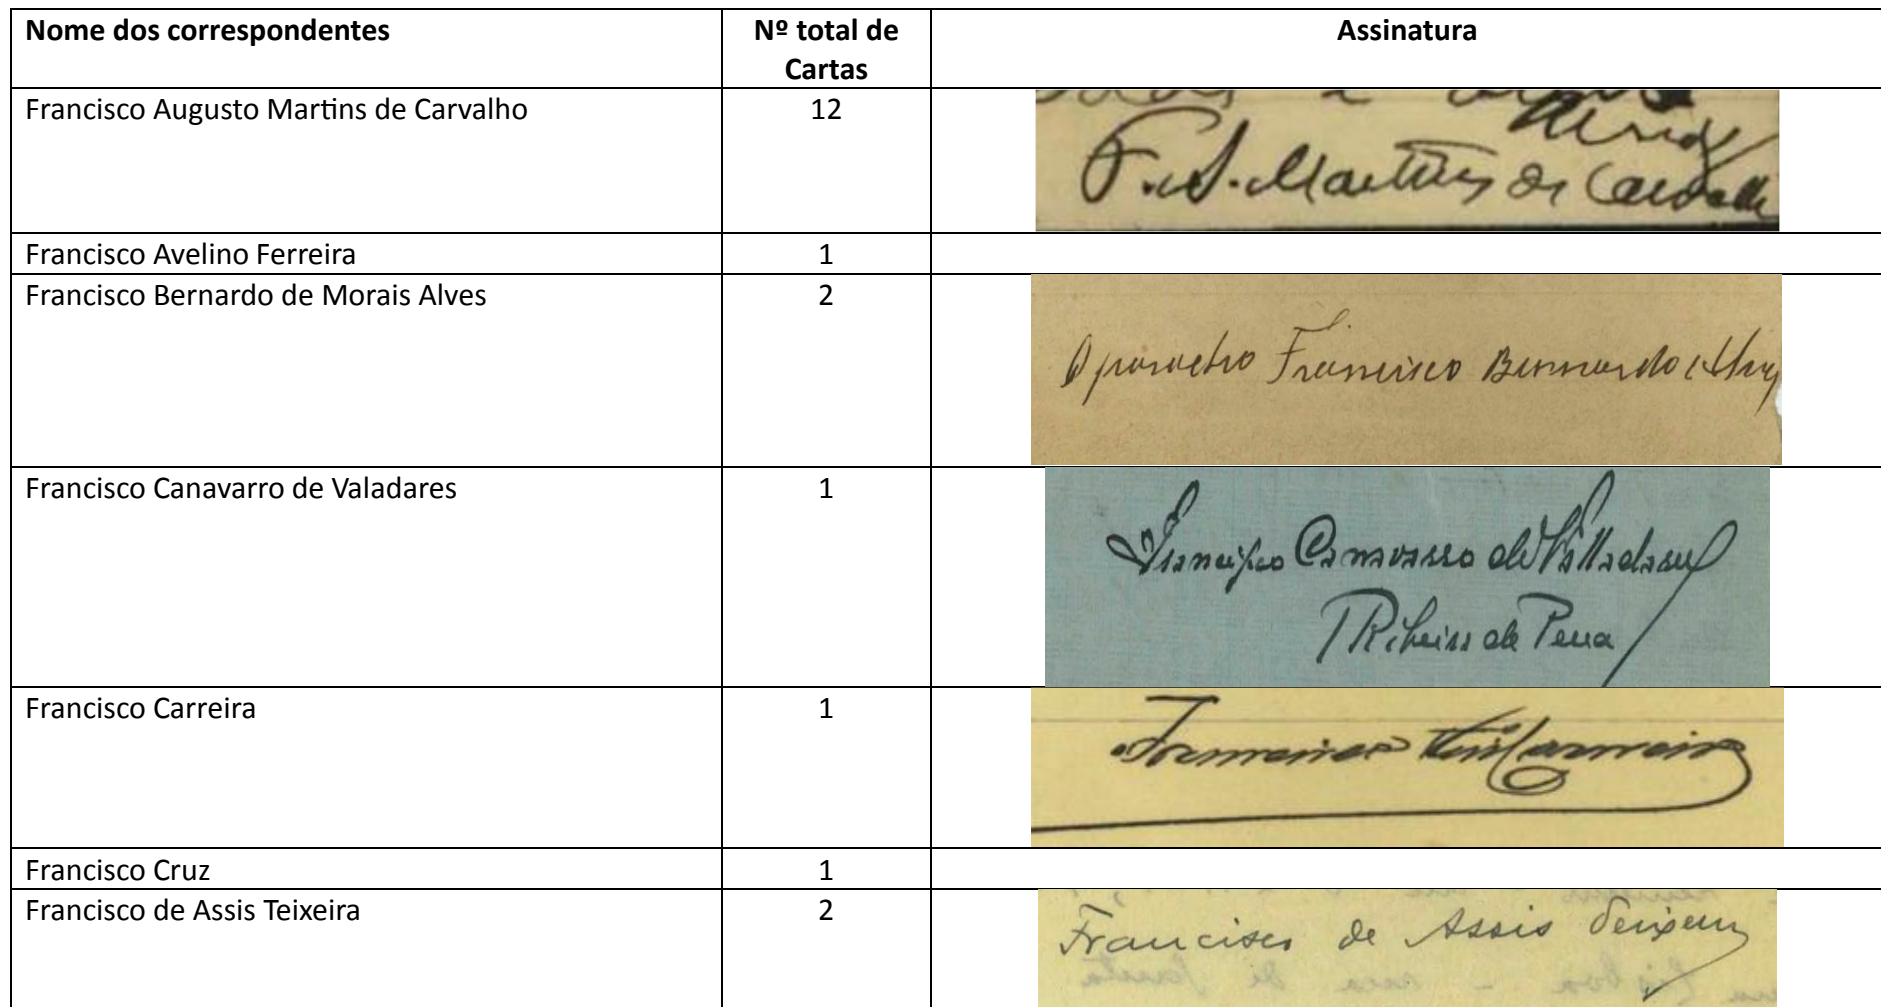 Nome dos correspondentes
Nº total de
Cartas
Assinatura
Francisco Augusto Martins de Carvalho
12
F. A. Martins de Carvalho
Francisco Avelino Ferreira
1
Francisco Bernardo de Morais Alves
2
O parocho Francisco Bernardo Alves
Francisco Canavarro de Valadares
1
Francisco Canavarro de Valladares
Ribeira de Pena
Francisco Carreira
1
Francisco
Francisco Cruz
1
Francisco de Assis Teixeira
2
Francisco de Assis Teixeira